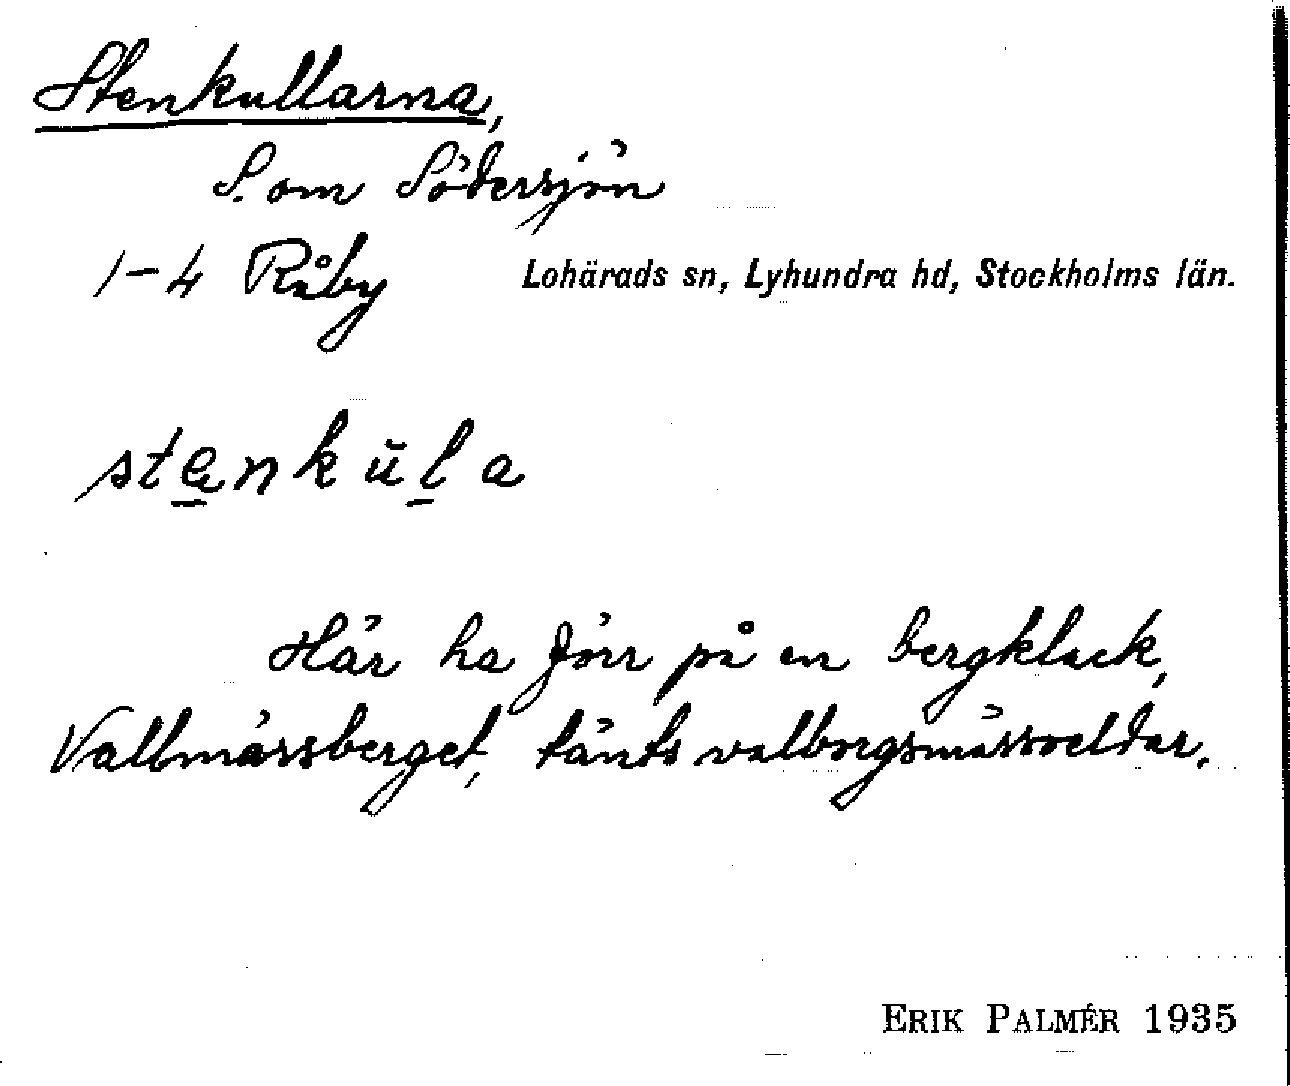 Stenkullarna,
S. om Södersjön
1-4 Råby Lohärads sn, Lyhundra hd, Stockholms län.
stenkula
Här ha förr på en bergklack,
Vallmässberget, tänts valborgsmässoeldar.
ERIK PALMÉR 1935